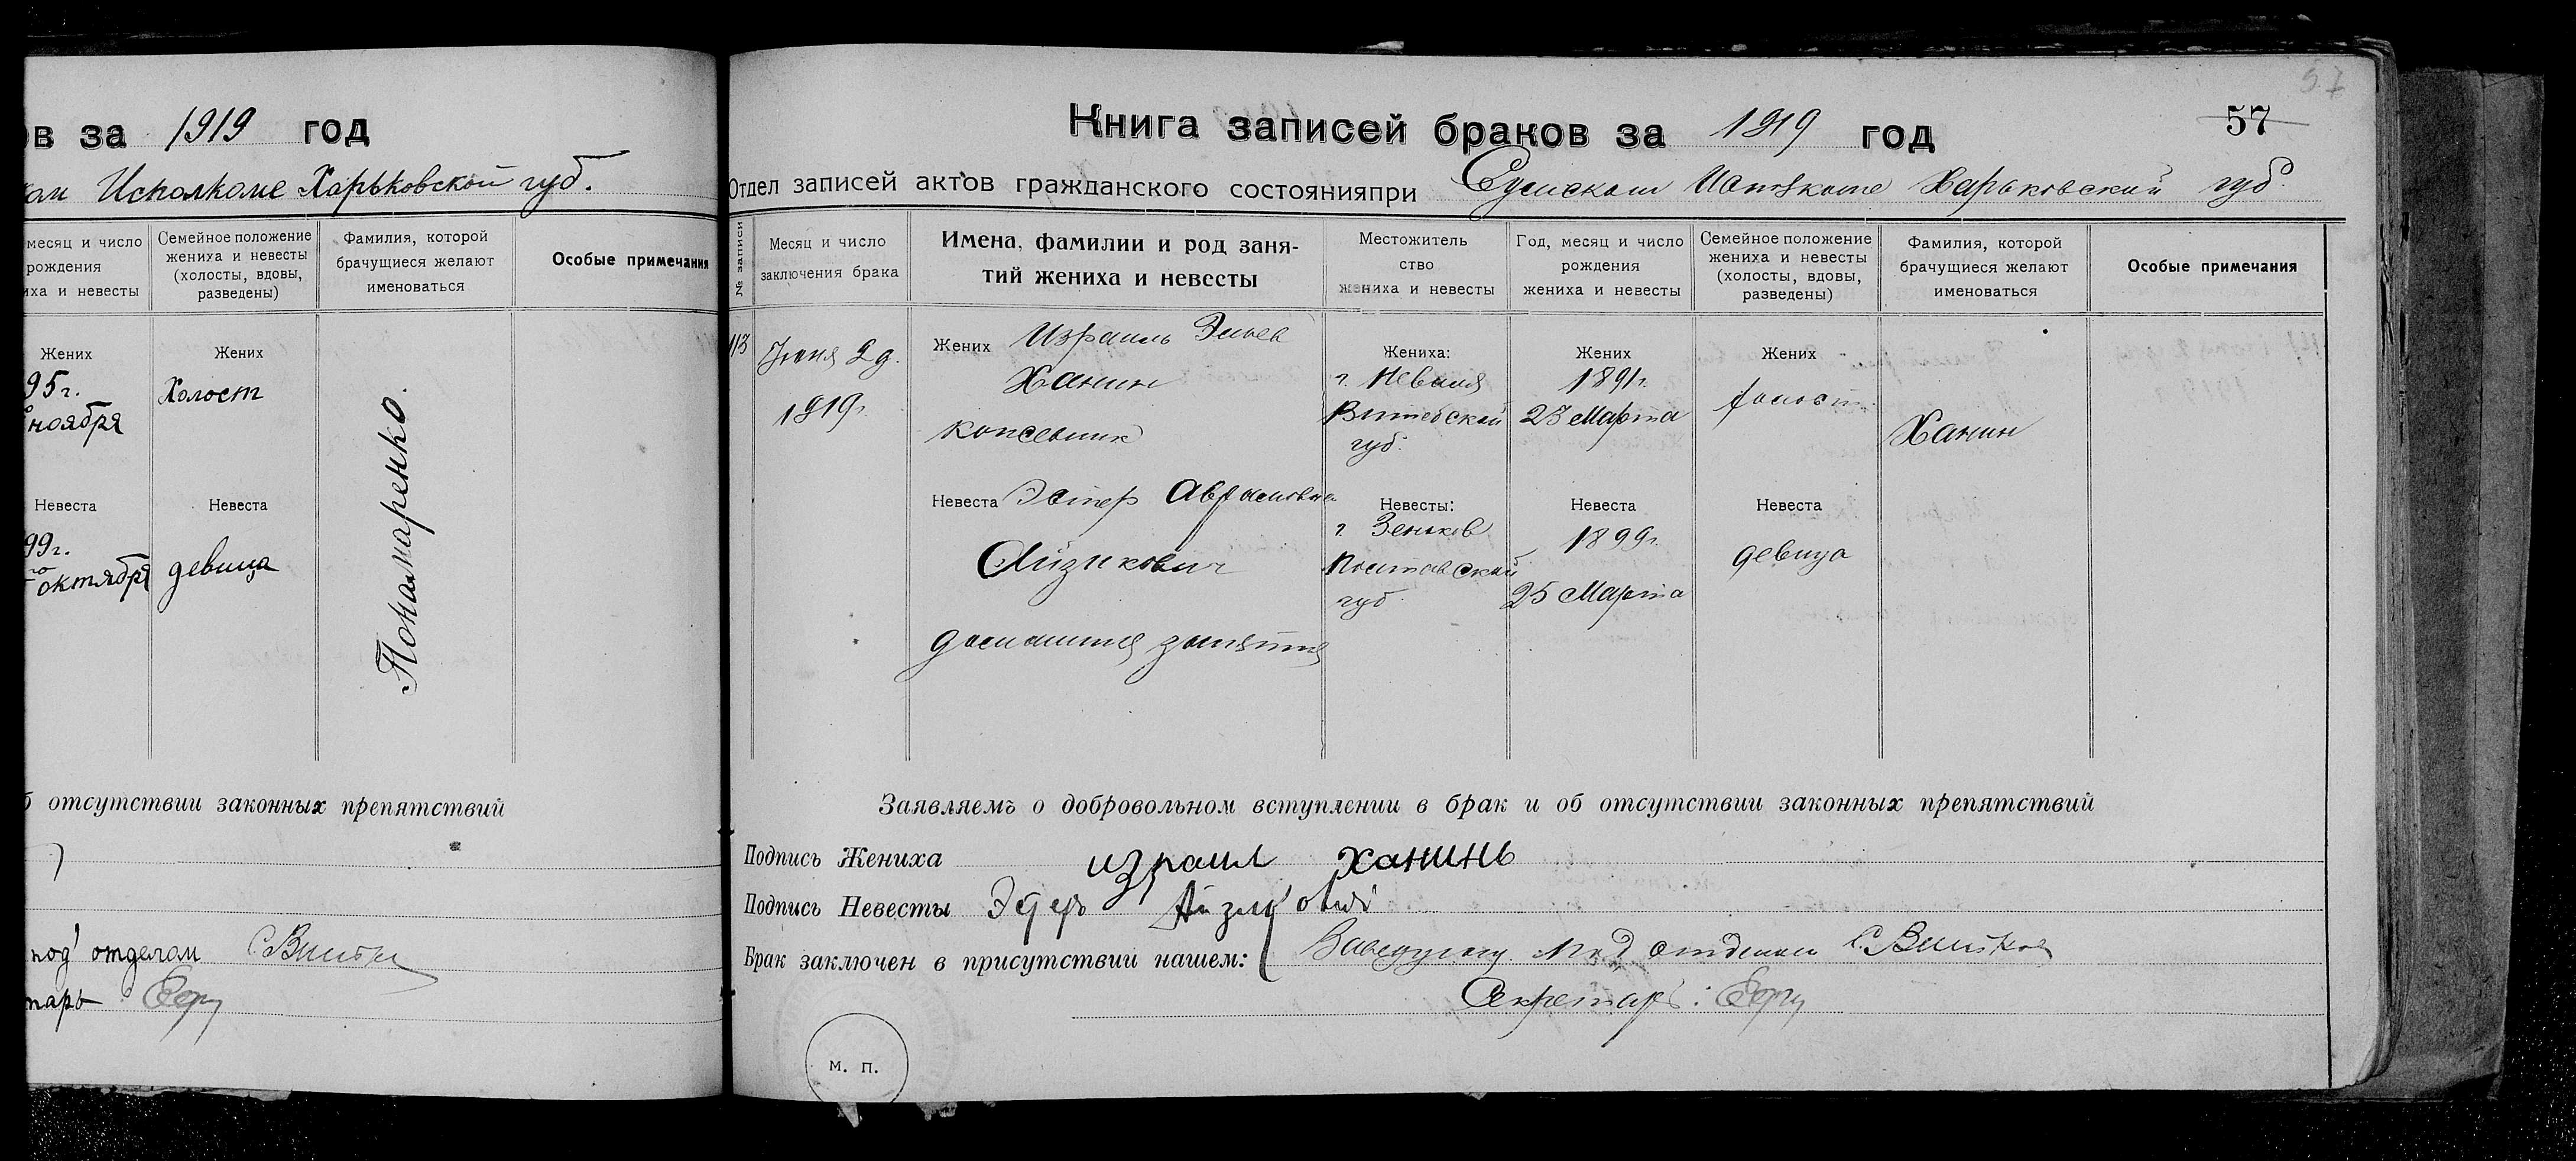 ов за 1919 год
Исполкоме Харьковской губ.
месяц и число
рождения
иха и невесты
Семейное положение
жениха и невесты
(холосты, вдовы,
разведены)
Фамилия, которой
брачущиеся желают
именоваться
Особые примечания
Жених
95 г.
ноября
Жених
Холост
Понамаренко.
Невеста
99 г.
октября
Невеста
девица
отсутствии законных препятствий
под отделом
тарь
57
57
Книга записей браков за 1919 год
Отдел записей актов гражданского состоянияпри Сумском Харьковской губ.
№ записи
Месяц и число
заключения брака
Имена, фамилии и род заня-
тий жениха и невесты
Местожитель
ство
жениха и невесты
Год, месяц и число
рождения
жениха и невесты
Семейное положение
жениха и невесты
(холосты, вдовы,
разведены)
Фамилия, которой
брачущиеся желают
именоваться
Особые примечания
113
Июня 2 д.
1919 г.
Жених Израиль Эльев
Ханин
Жениха:
г. Невеля
Витебской
губ.
Жених
1891 г.
23 Марта
Жених
холост
Ханин
Невеста Эстер Абрамовна
Айзикович
домашния занятия
Невесты:
г. Зеньков
Полтавской
губ.
Невеста
1899 г.
25 Марта
Невеста
девица
Заявляемъ о добровольном вступлении в брак и об отсутствии законных препятствий
Подпись Жениха израил ханинь
Подпись Невесты
Брак заключен в присутствии нашем: Заведующ. Под отделом
Секретарь:
м. п.